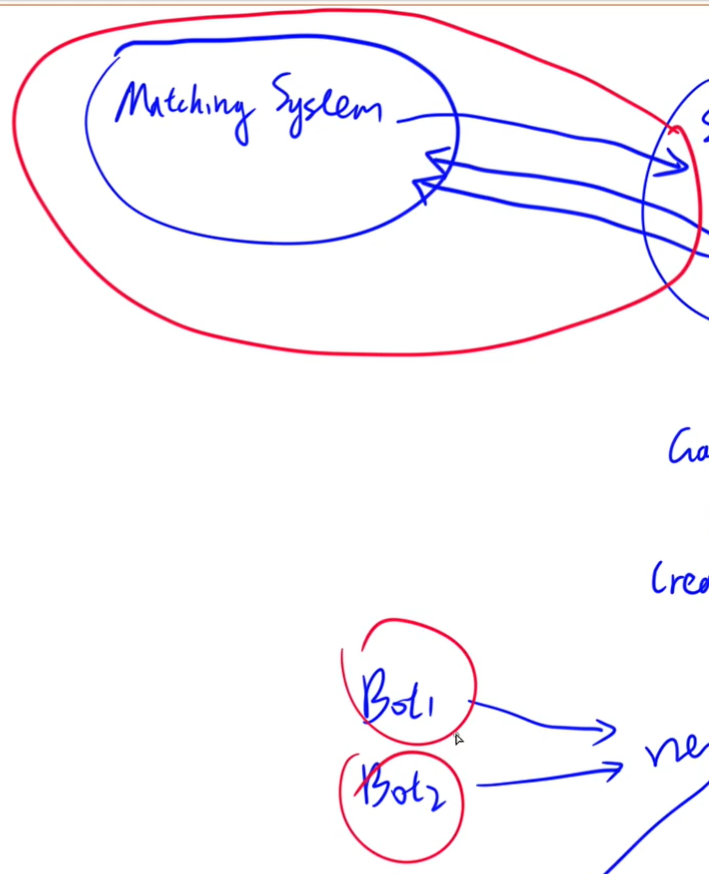 Matching System
S
Ga
Crea
Bot1
ne
Bot2